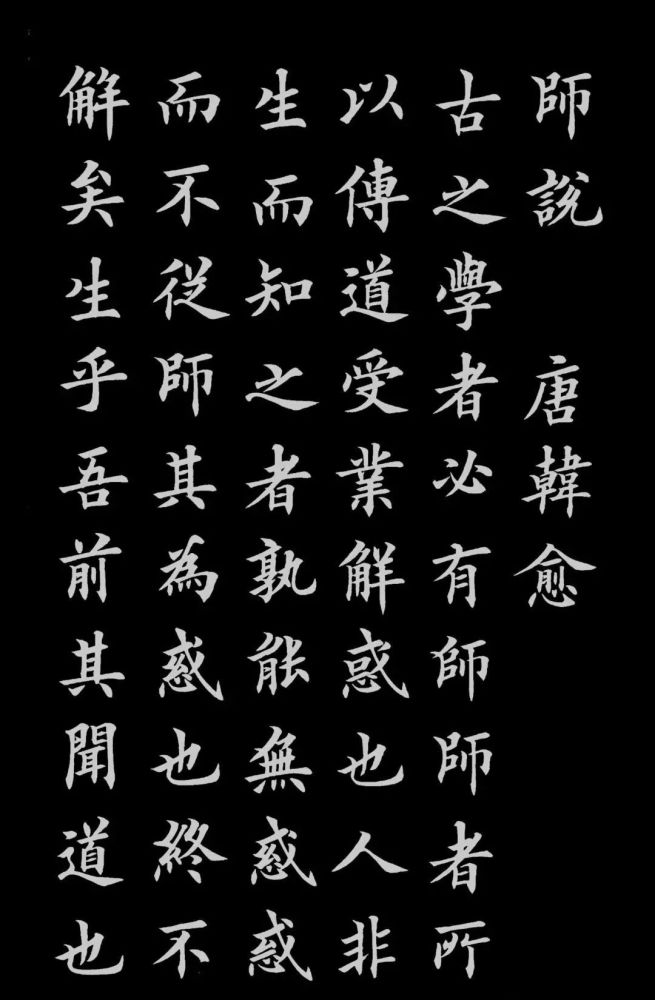 師說 唐韓愈
古之學者必有師師者所
以傳道受業解惑也人非
生而知之者孰能無惑惑
而不從師其為惑也終不
解矣生乎吾前其聞道也